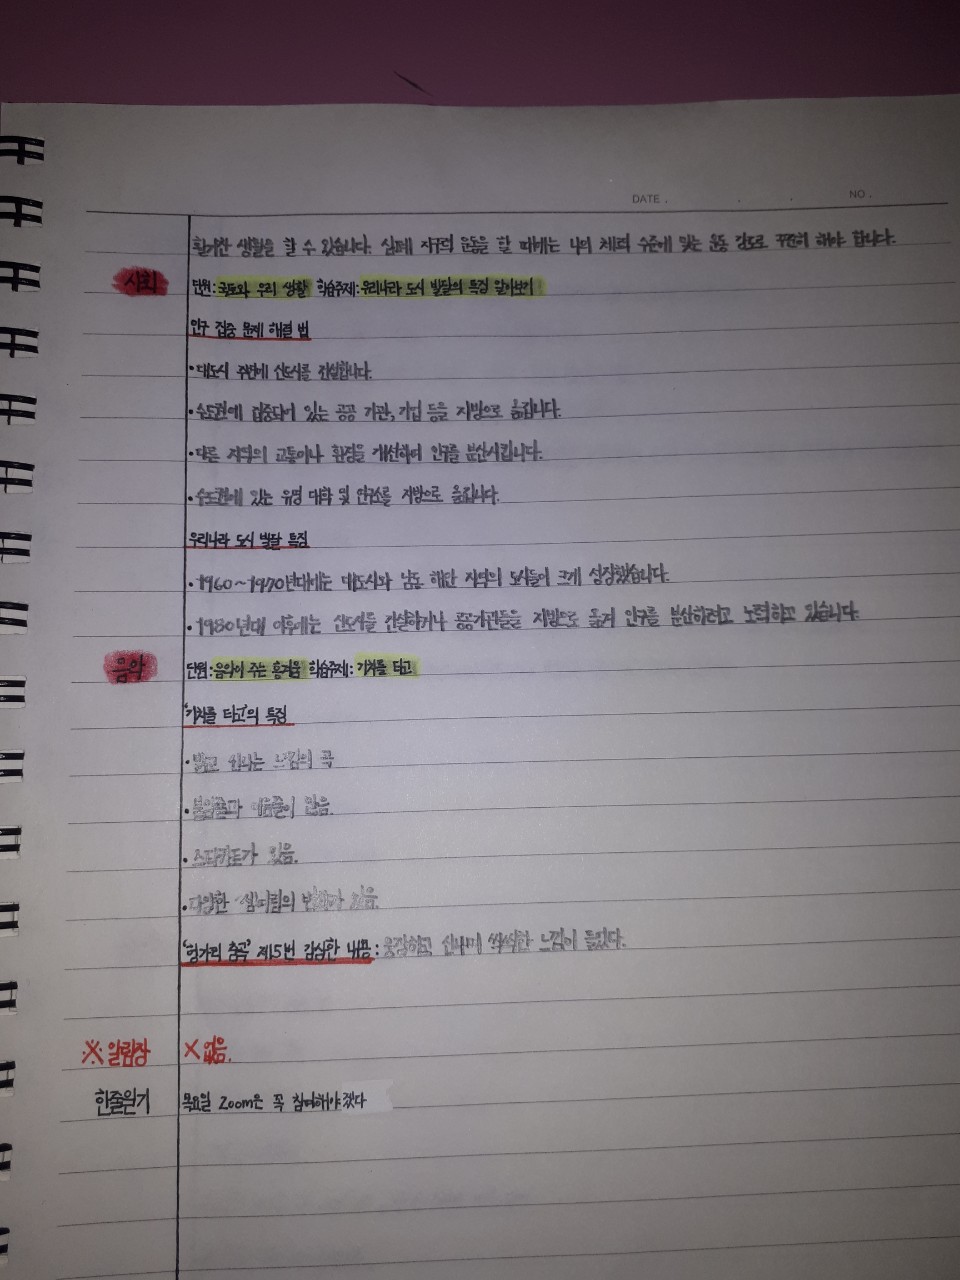 DATE . . . NO .
활기찬 생활을 할 수 있습니다. 심폐 지구력 운동을 할 때에는 나의 체력 수준에 맞는 운동 강도로 꾸준히 해야 합니다.
사회 단원: 국토와 우리 생활 학습주제: 우리나라 도시 발달의 특징 알아보기
인구 집중 문제 해결 법
•대도시 주변에 신도시를 건설합니다.
•수도권에 집중되어 있는 공공 기관, 기업 등을 지방으로 옮깁니다.
•다른 지역의 교통이나 환경을 개선하여 인구를 분산시킵니다.
•수도권에 있는 유명 대학 및 연구소를 지방으로 옮깁니다.
우리나라 도시 발달 특징
•1960~1970년대에는 대도시와 남동 해안 지역의 도시들이 크게 성장했습니다.
•1980년대 이후에는 신도시를 건설하거나 공공기관들을 지방으로 옮겨 인구를 분산하려고 노력하고 있습니다.
음악 단원: 음악이 주는 즐거움 학습주제: 기차를 타고
'기차를 타고'의 특징
•밝고 신나는 느낌의 곡
•붙임줄과 이음줄이 있음.
•스타카토가 있음.
•다양한 셈여림의 변화가 있음.
'헝가리 춤곡' 제5번 감상한 내용: 웅장하고 신나며 씩씩한 느낌이 들었다.
※알림장 X 없음.
한줄일기 목요일 Zoom은 꼭 참여해야겠다